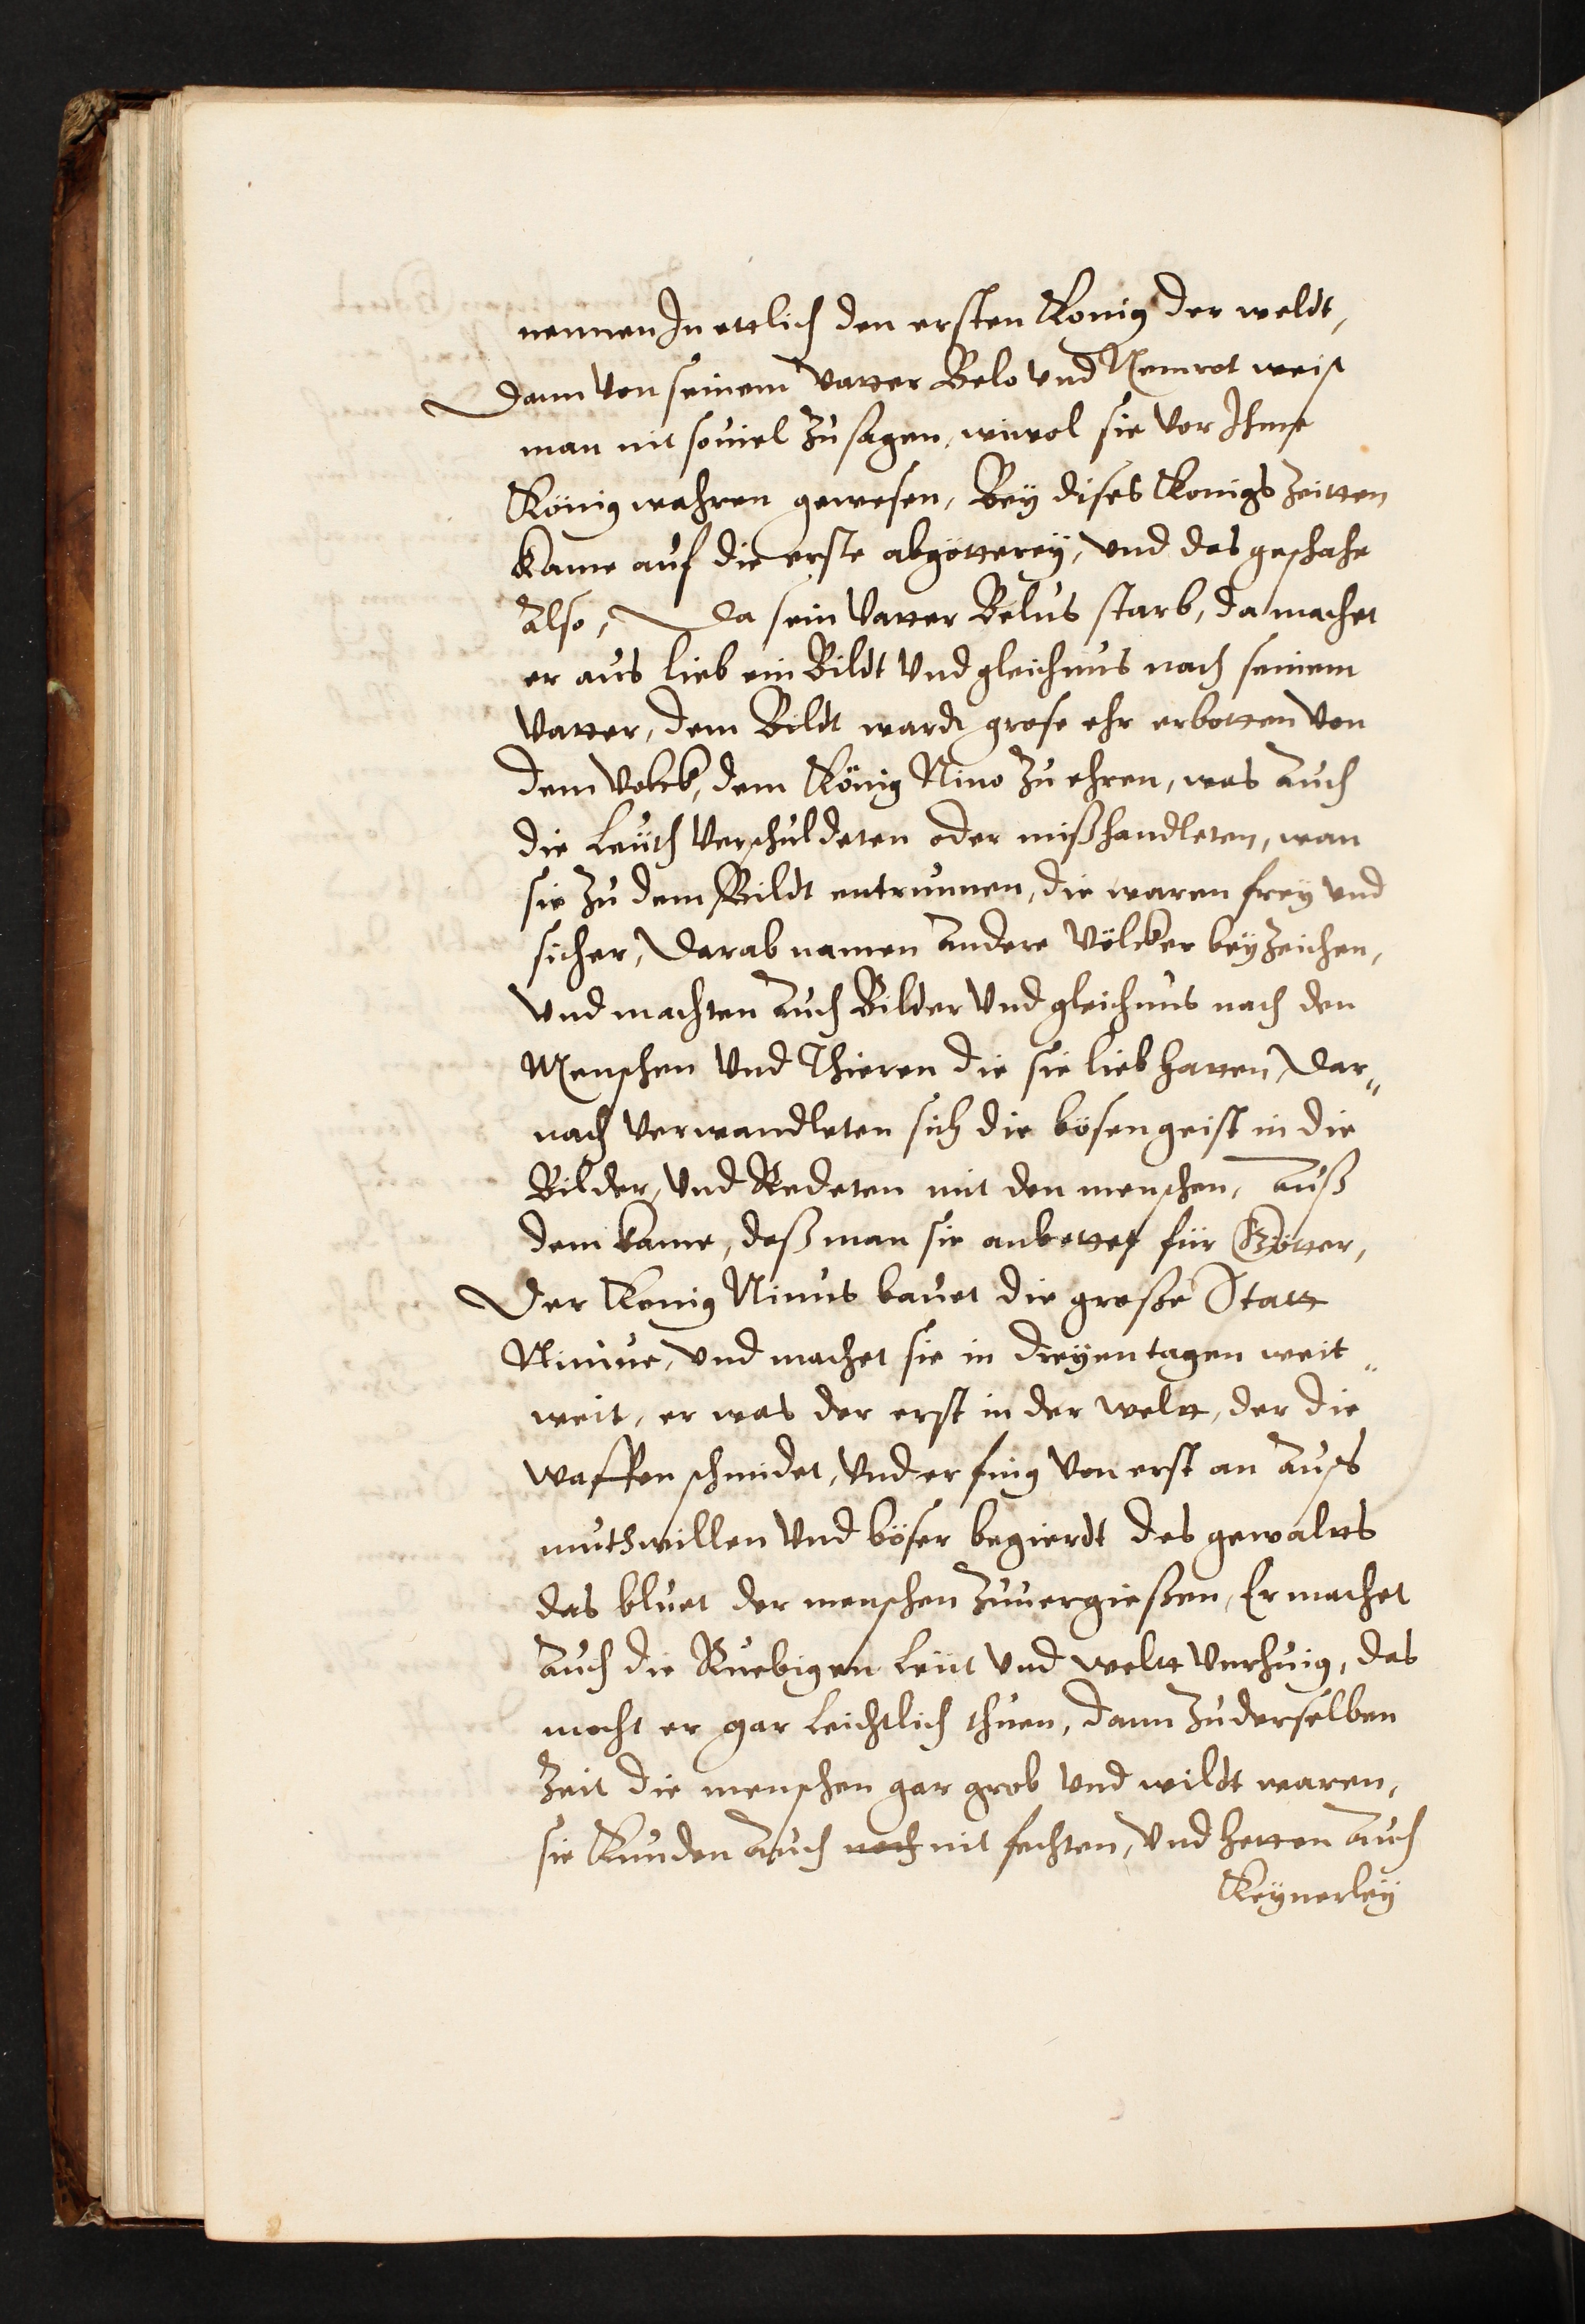 nennen In ettlich den ersten Konig der weldt,
Dann von seinem vatter Belo vnd Nemrot weist
man nit souiel zu sagen, wiwol sie vor Ihme
König wahren gewesen, Beÿ dises Konigs zeitten
kame auf die erste abgötterey, vnd das geschahe
Also, Da sein Vatter Belus starb, da machet
er aus lieb ein Bildt vnd gleichnus nach seinem
vatter, dem Bildt wardt grose ehr erbotten von
dem volck, dem König Nino zu ehren, was Auch
die Leüth verschuldeten oder mißhandleten, wan
sie zu dem Bildt entrunnen, die waren freÿ vnd
sicher, Darab namen Andere völcker beÿzeichen,
vnd machten Auch Bilder vnd gleichnus nach den
Menschen vnd Thieren die sie lieb hatten, Dar„
nach verwandleten sich die bösen geist in die
Bilder, vnd Redeten mit den menschen, Auß
dem kame, daß man sie anbettet für Götter,
Der Konig Ninus bauet die große Statt
Niniue, vnd machet sie in dreÿen tagen weit„
weit, er was der erst in der weltt, der die
waffen schmidet, vnd er fing von erst an Auß
muthwillen vnd böser begierdt des gewalts
das bluet der menschen zuuergießen, Er machet
Auch die Ruebigen Leüt vnd weltt vnrhuig, das
mocht er gar leichtlich thuen, dann zu derselben
zeit die menschen gar grob vnd wildt waren,
sie Kunden Auch noch nit fechten, vnd hetten Auch
Keÿnerleÿ